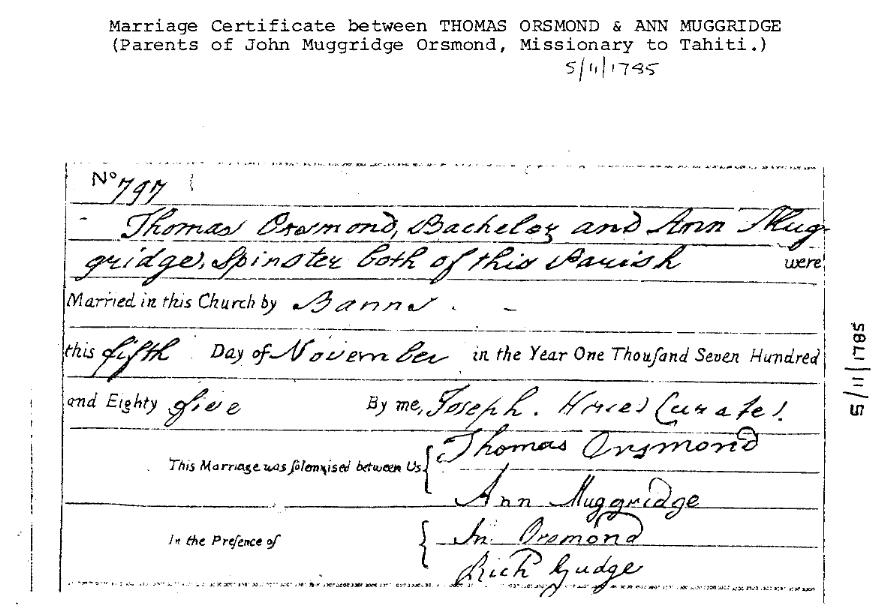 Marriage Certificate between THOMAS ORSMOND & ANN MUGGRIDGE
(Parents of John Muggridge Orsmond, Missionary to Tahiti.)
5/11/1785
No 797
Thomas Orsmond, Bachelor and Ann Mug-
gridge, Spinster both of this Parish were
Married in this Church by Banns.
this fifth Day of November in the Year One Thouſand Seven Hundred
and Eighty five By me, Joseph. Curate.
This Marriage was ſolemnized between Us
Thomas Orsmond
Ann Muggridge
In the Preſence of
Jn Orsmond
Rich Gudge
5/11/1785